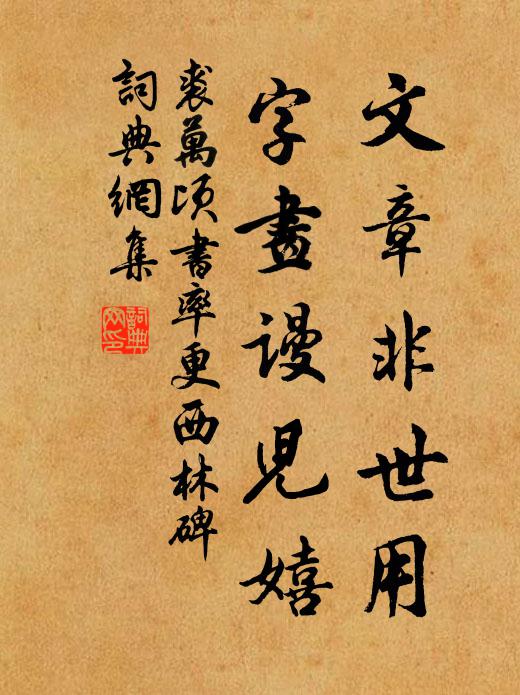 文章非世用
字畫謾兒嬉
裘萬頃書率更西林碑
詞典網集
詞典
网印